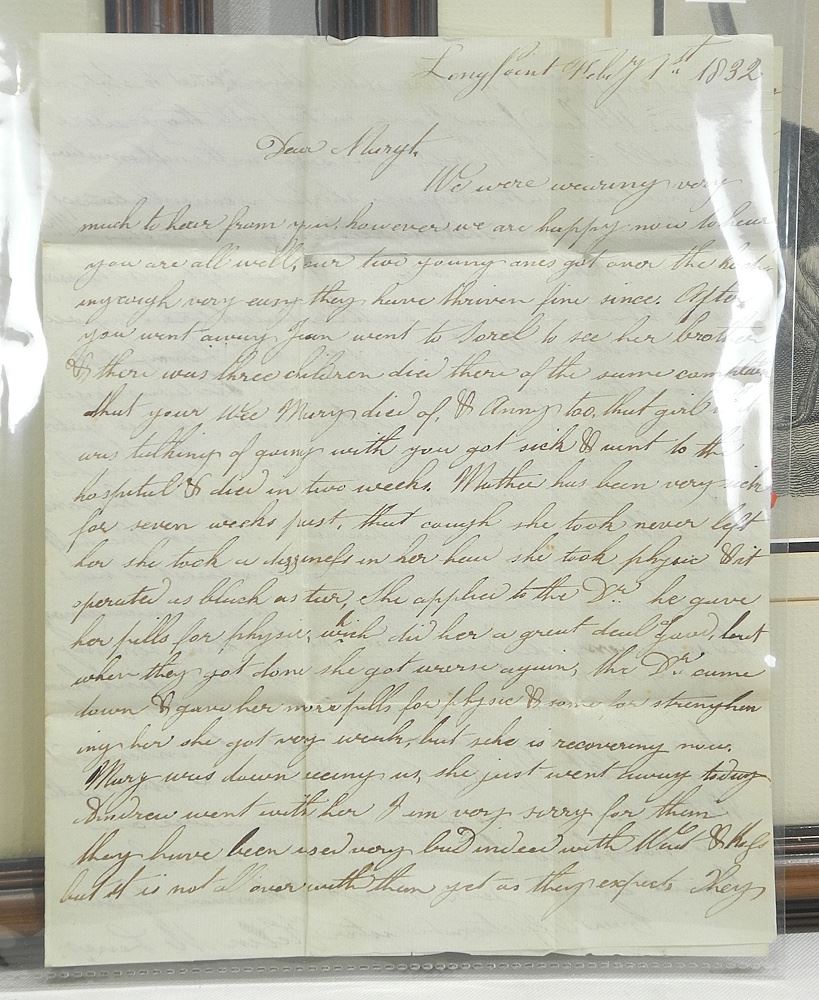 Longpoint Feby 1st 1832
Dear Maryt,
We were wearing very
much to hear from you, however we are happy now to hear
you are all well, our two young ones got over the
ing cough very easy they have thriven fine since. After
you went away Jean went to Sorel to see her brother
& there was three children died there of the same complaint
that your Wee Mary died of, & Anny too, that girl
was talking of going with you got sick & went to the
hospital & died in two weeks. Mother has been very sick
for seven weeks past, that cough she took never left
her she took a dizziness in her head she took physic & it
operated as black as tar, She applied to the Dr. he gave
her pills for physic, which did her a great deal of good, but
when they got done she got worse again, the Dr. came
down & gave her more pills for physic & some for strenghen
ing her she got very weak, but sehe is recovering now.
Mary was down seeing us, she just went away today
Andrew went with her I am very sorry for them
they have been used very bad indeed with &
but it is not all over with them yet as they expect. They